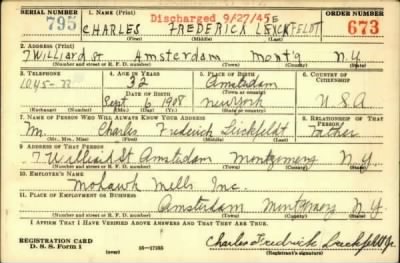 SERIAL NUMBER 1. NAME (Print) Discharged 9/27/45 E ORDER NUMBER
795 CHARLES FREDERICK LEICKFELDT 673
(First) (Middle) (Last)
2. ADDRESS (Print)
7 Williard St Amsterdam Mont'g N.Y
(Number and street or R. F. D. number) (Town) (County) (State)
3. TELEPHONE 4. AGE IN YEARS 5. PLACE OF BIRTH 6. COUNTRY OF CITIZENSHIP
32 Amsterdam
DATE OF BIRTH (Town or county)
1045-R Sept 6 1908 New York U S A
(Exchange) (Number) (Mo.) (Day) (Yr.) (State or country)
7. NAME OF PERSON WHO WILL ALWAYS KNOW YOUR ADDRESS 8. RELATIONSHIP OF THAT PERSON
Mr. Charles Frederick Leickfeldt Father
(Mr., Mrs., Miss) (First) (Middle) (Last)
9. ADDRESS OF THAT PERSON
7 Williard St Amsterdam Montgomery N.Y
(Number and street or R. F. D. number) (Town) (County) (State)
10. EMPLOYER'S NAME
Mohawk Mills Inc.
11. PLACE OF EMPLOYMENT OR BUSINESS
Amsterdam Montgomery N.Y
(Number and street or R. F. D. number) (Town) (County) (State)
I AFFIRM THAT I HAVE VERIFIED ABOVE ANSWERS AND THAT THEY ARE TRUE.
REGISTRATION CARD
D. S. S. Form 1 16—17105 Charles Fredrick Leickfeldt Jr.
(Registrant's signature)